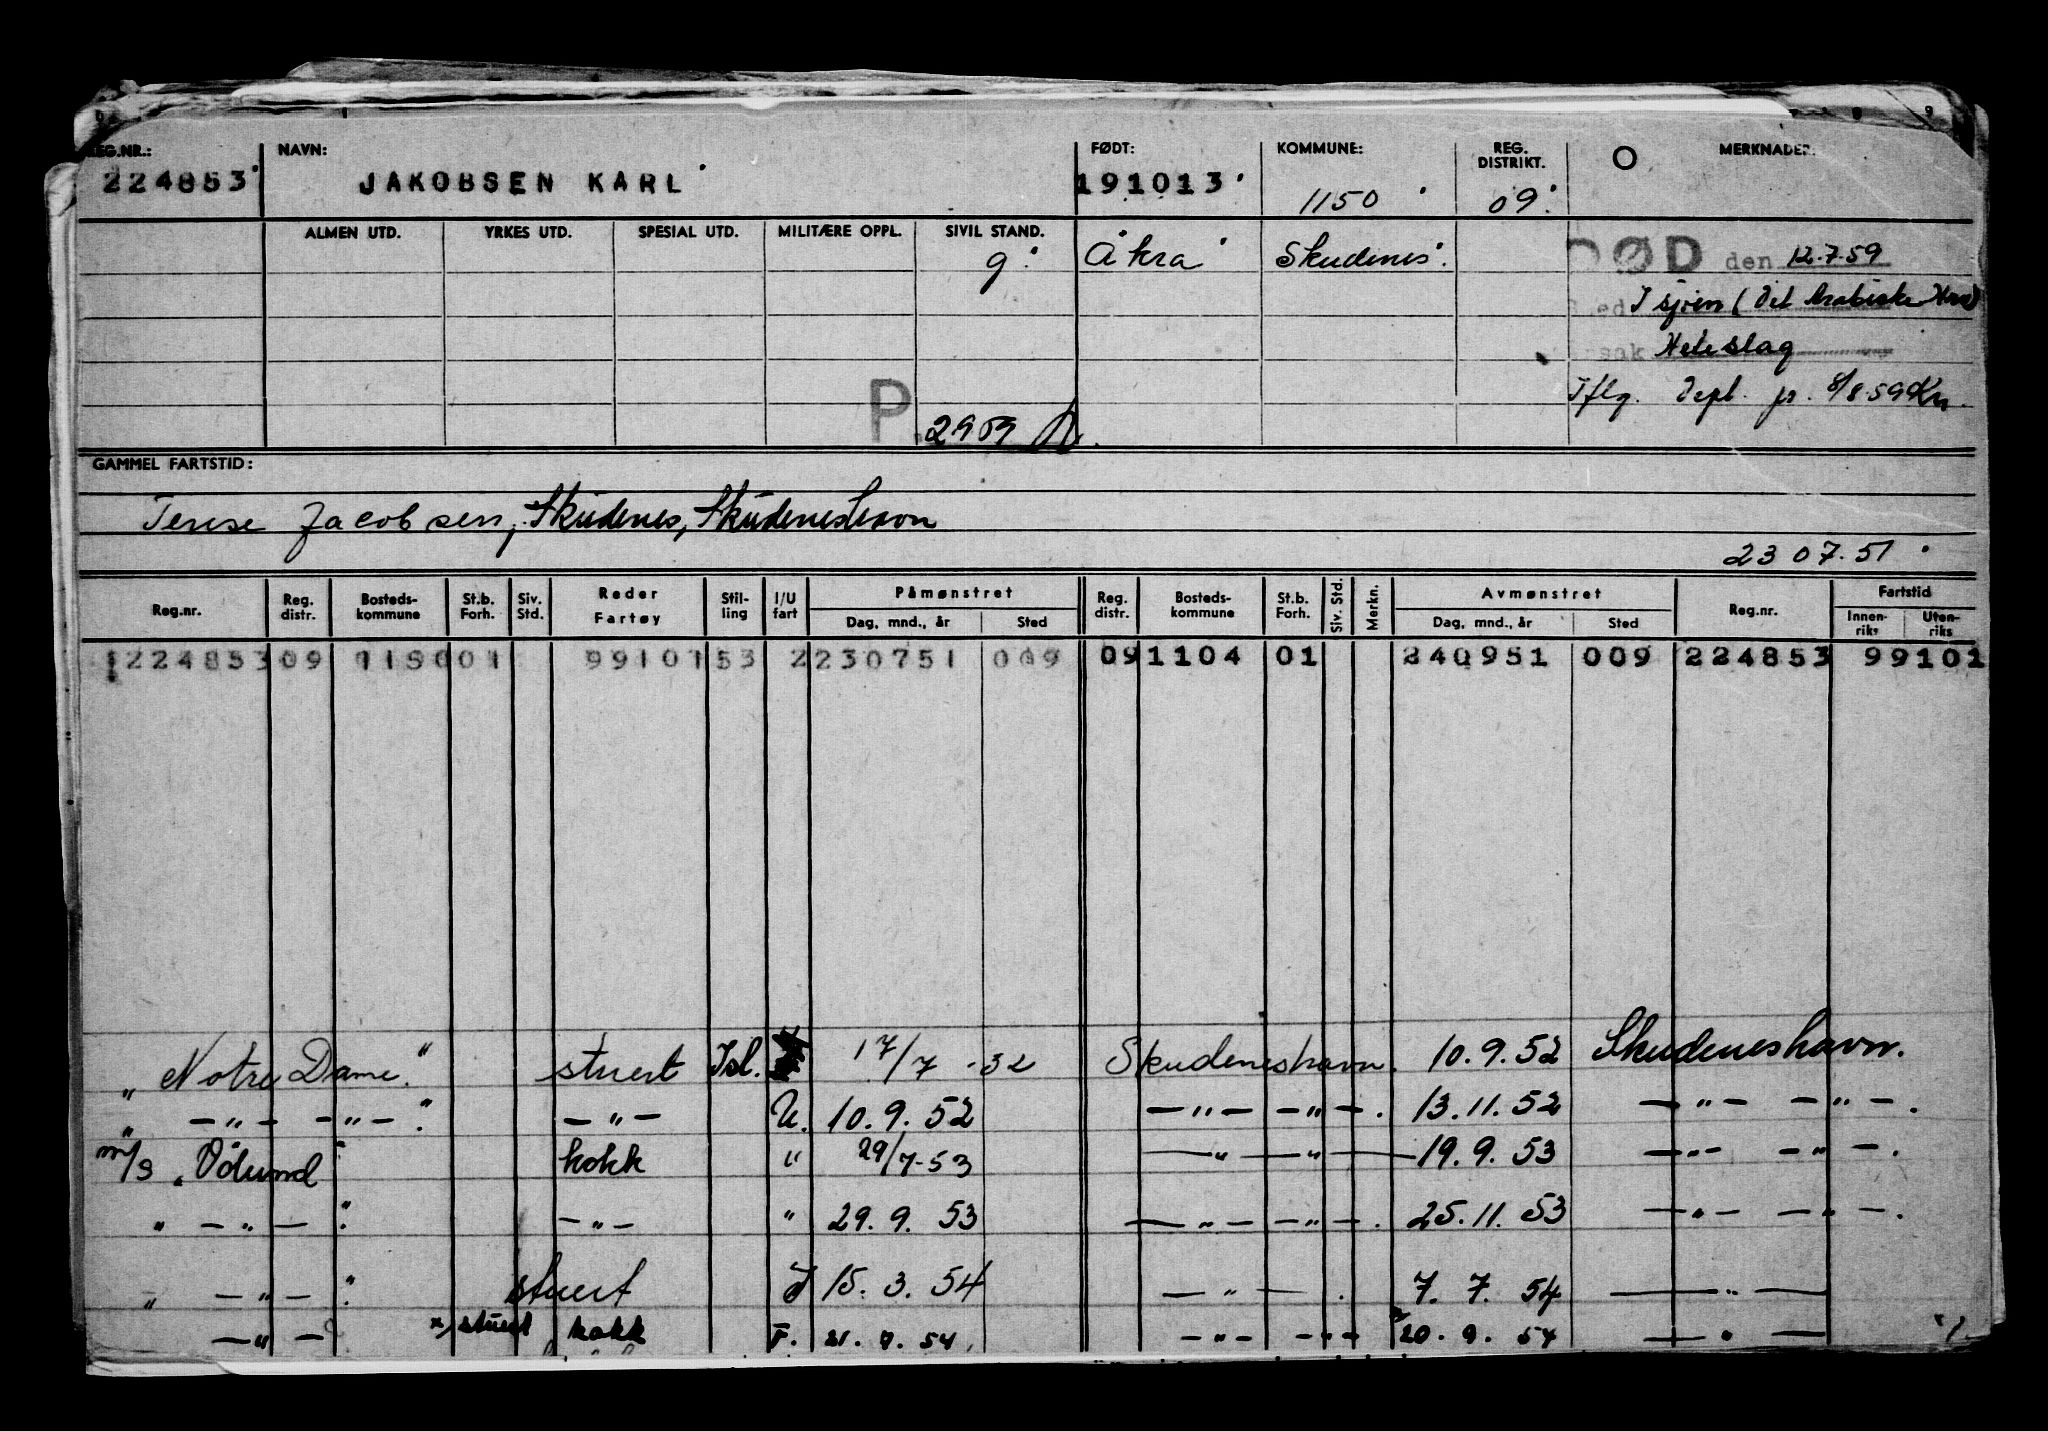 REG.NR.: NAVN: FØDT: KOMMUNE: REG. DISTRIKT. MERKNADER.
224853 JAKOBSEN KARL 191013 1150 09
ALMEN UTD. YRKES UTD. SPESIAL UTD. MILITÆRE OPPL. SIVIL STAND.
g Åkra Skudenes DØD den 12.7.59
I sjøen (Det Arabiske Hav)
Heteslag
Iflg. 8/8.59
P. 2959
GAMMEL FARTSTID:
Terese Jacobsen, Skudenes, Skudeneshavn
23 07.51
Reg.nr. Reg. distr. Bosteds-kommune St.b. Forh. Siv. Std. Reder Fartøy Stil-ling I/U fart Påmønstret Dag, mnd., år Sted Reg. distr. Bosteds-kommune St.b. Forh. Siv. Std. Merkn. Avmønstret Dag, mnd., år Sted Reg.nr. Fartstid Innen-riks Uten-riks
1224853 09 1150 01 99101 53 2 230751 009 09 1104 01 240951 009 224853 99101
"Notre Dame." stuert Isl. 17/7-52 Skudeneshavn. 10.9.52 Skudeneshavn.
" -"- -"-." -"- U. 10.9.52 -"- -"-. 13.11.52 -"- -"-.
m/s kokk " 29/7-53 -"- -"- 19.9.53 -"- -"-.
" -"- ." -"- " 29.9.53 -"- -"-. 25.11.53 -"- -"-.
" -"- ." stuert I 15.3.54 -"-. 7.7.54 -"-
-"- x, stuert kokk F. -"- -"- 20.9.54 -"-